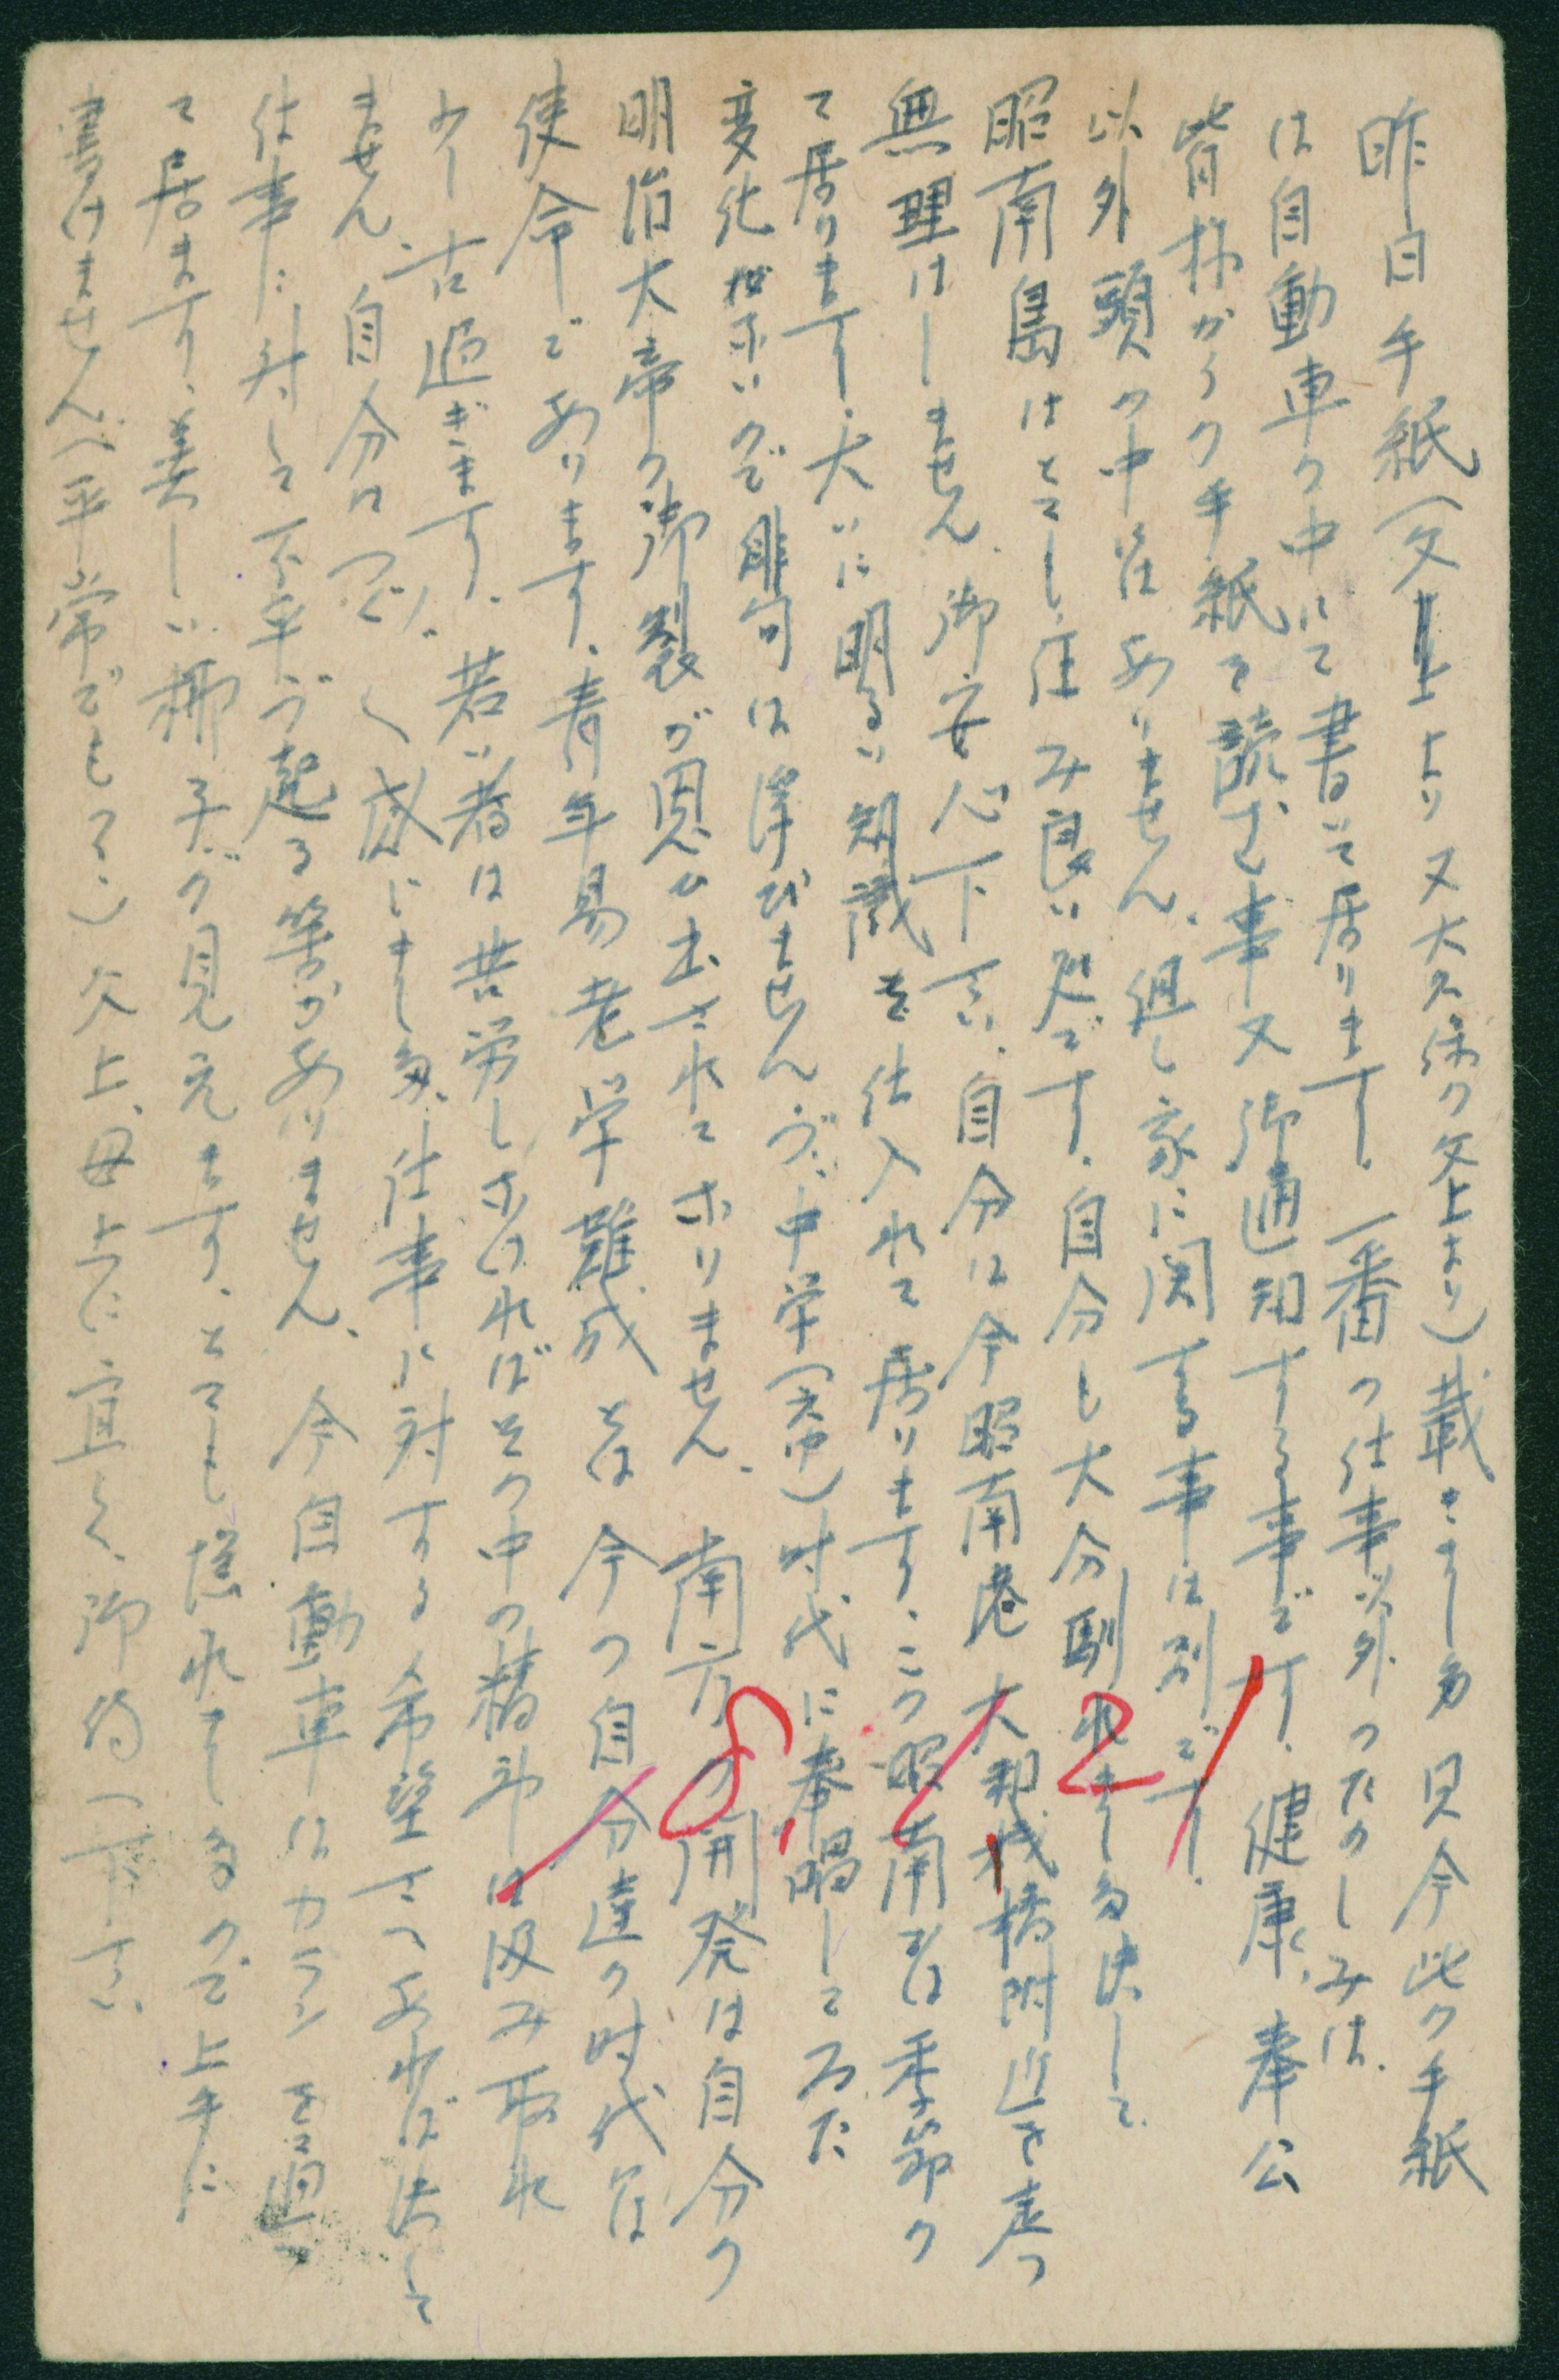 昨日手紙（父上より又大久保の父上より）戴きました 只今此の手紙
は自動車の中にて書いて居ります、一番の仕事以外のたのしみは、
皆様からの手紙を読む事又御通知する事です、健康、奉公
以外頭の中にはありません、但し家に関する事は別です、
昭南島はとても住み良い処です、自分も大分馴れました決して
無理はしません、御安心下さい、自分は今昭南港 大和桟橋附近を走つ
て居ります、大いに明るい知識を仕入れて居ります、この昭南には季節の
変化がないので俳句は浮びませんが、中学（天中）時代に奉唱してゐた
明治大帝の御製が思ひ出されてなりません、南方の開発は自分の
使命であります、青年易老学難成とは今の自分達の時代には
少し古過ぎます、若い者は苦労しなければその中の精神は汲み取れ
ません、自分はつく〲感じました、仕事に対する希望さへあれば決して
仕事に対して不平が起る筈がありません、今自動車はカランを通つ
て居ます、美しい椰子が見えます、とても揺れてますので上手に
書けません（平常でもネ、）父上、母上に宜しく、御待へ下さい
8 2